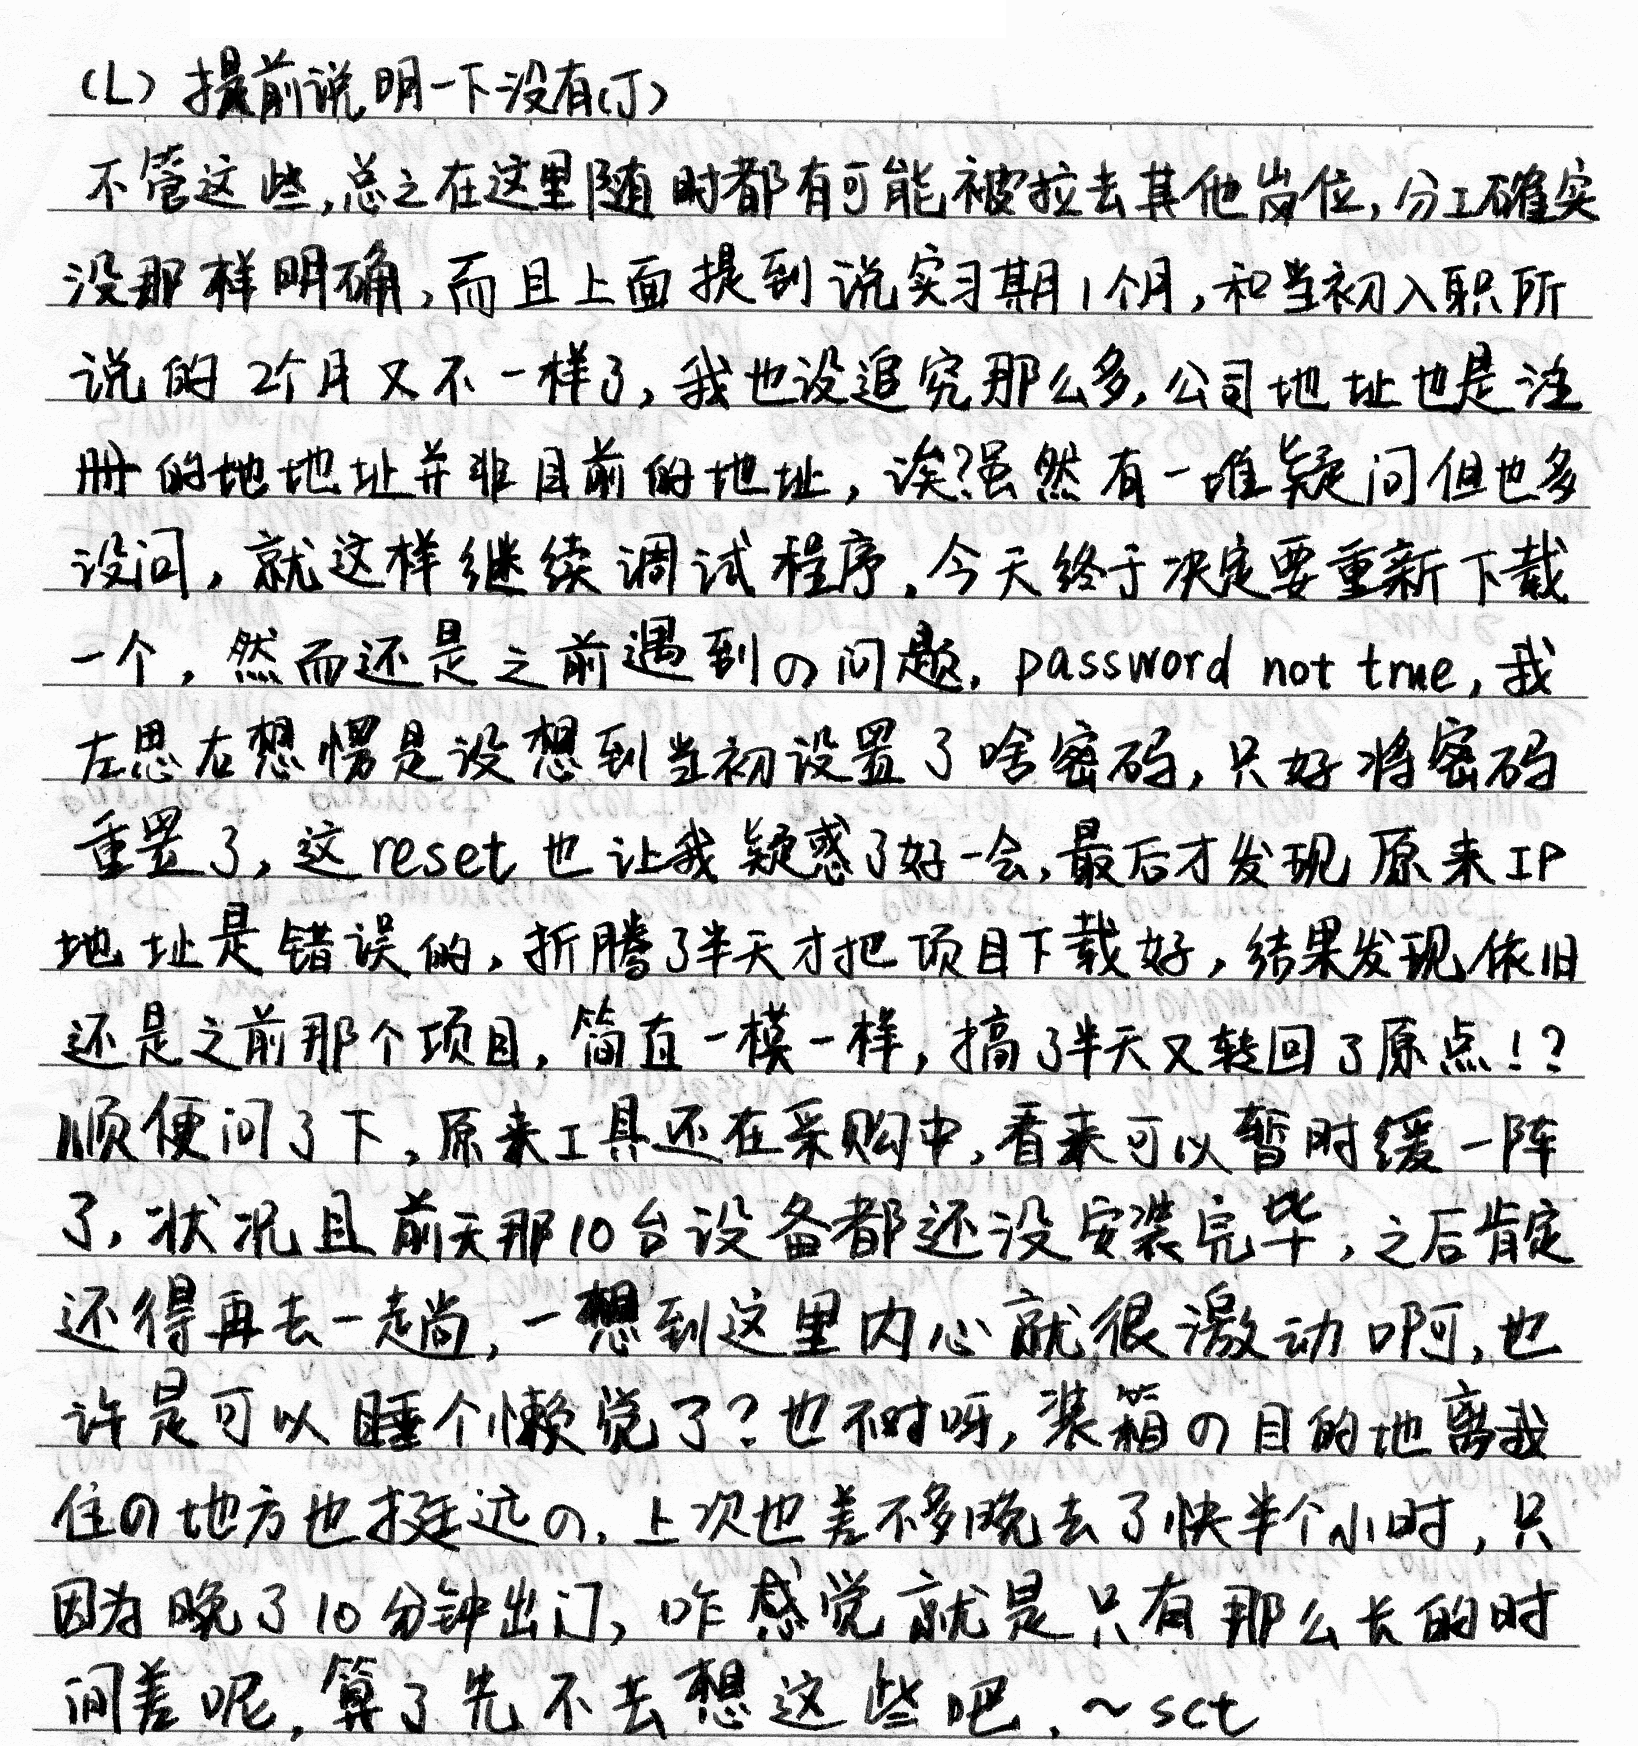 (L) 提前说明一下没有(J)
不管这些,总之在这里随时都有可能被拉去其他岗位,分工确实
没那样明确,而且上面提到说实习期1个月,和当初入职所
说的2个月又不一样了,我也没追究那么多,公司地址也是注
册的地地址并非目前的地址,诶?虽然有一堆疑问但也多
没问,就这样继续调试程序,今天终于决定要重新下载
一个,然而还是之前遇到の问题,password not true,我
左思右想愣是没想到当初设置了啥密码,只好将密码
重置了,这reset也让我疑惑了好一会,最后才发现原来IP
地址是错误的,折腾了半天才把项目下载好,结果发现依旧
还是之前那个项目,简直一模一样,搞了半天又转回了原点!?
顺便问了下,原来工具还在采购中,看来可以暂时缓一阵
了,状况且前天那10台设备都还没安装完毕,之后肯定
还得再去一趟,一想到这里内心就很激动啊,也
许是可以睡个懒觉了?也不对呀,装箱の目的地离我
住の地方也挺远の,上次也差不多晚去了快半个小时,只
因为晚了10分钟出门,咋感觉就是只有那么长的时
间差呢,算了先不去想这些吧,~sct